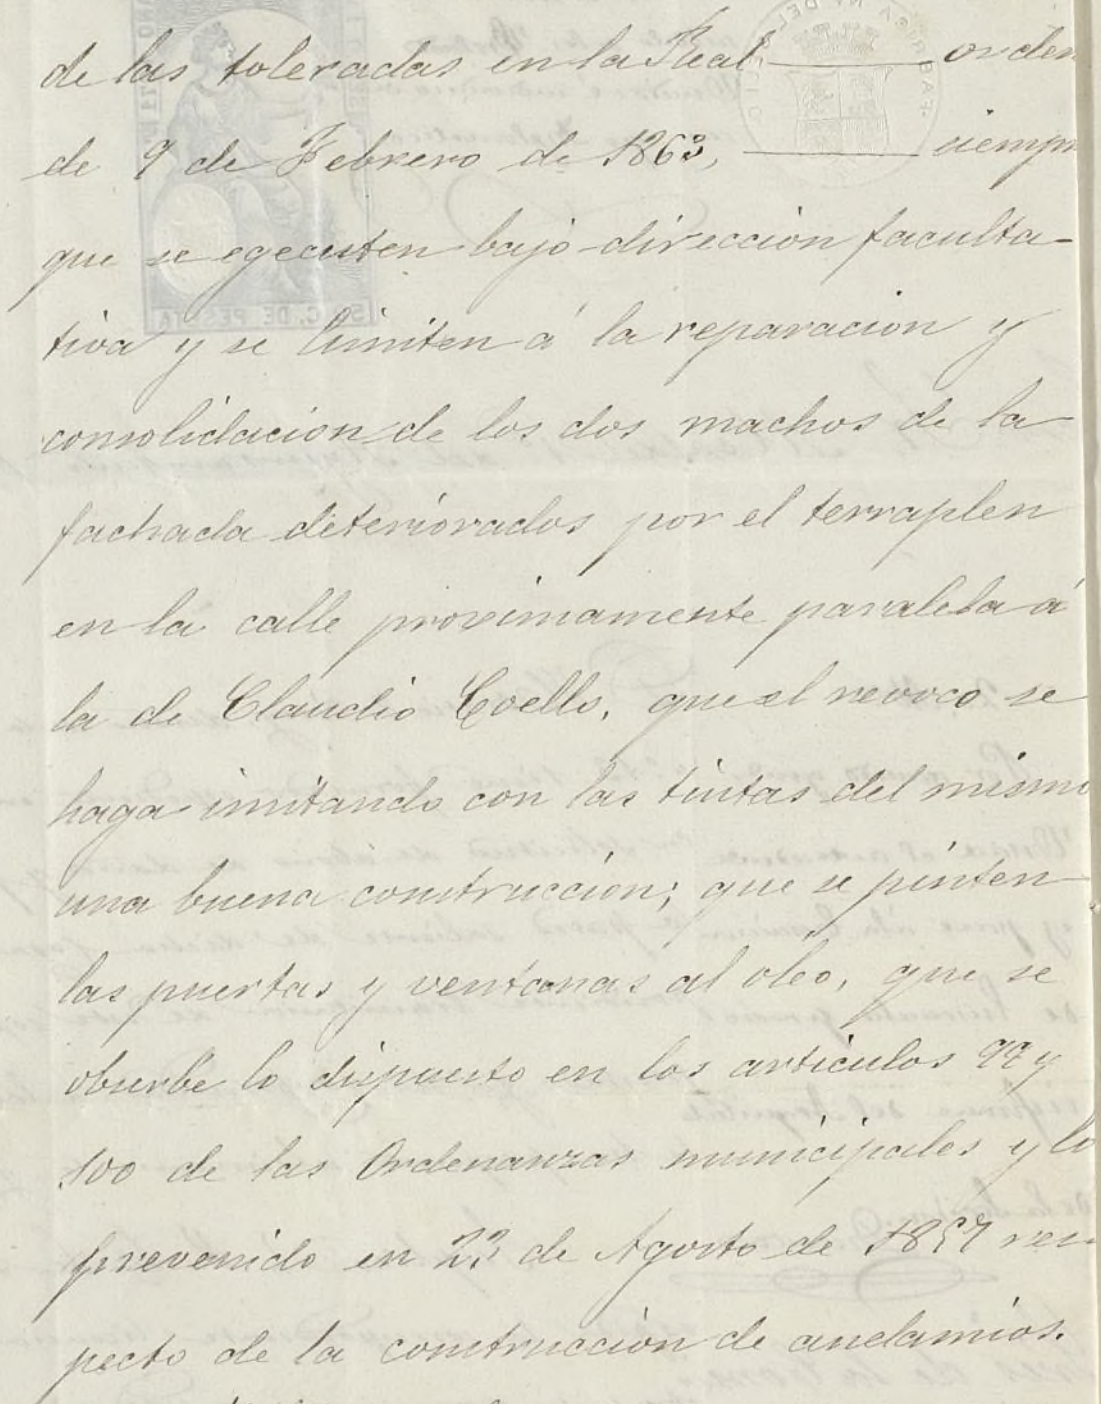 de las toleradas en la Real orden
de 9 de Febrero de 1863, siempre
que se egecuten bajo dirección faculta-
tiva y se limiten á la reparación y
consolidación de los dos machos de la
fachada deteriorados por el terraplen
en la calle proximamente paralela á
la de Claudio Coello, que el revoco se
haga imitando con las tintas del mismo
una buena construcción; que se pinten
las puertas y ventanas al óleo, que se
oberbe lo dispuesto en los artículos 99 y
100 de las Ordenanzas municipales y lo
prevenido en 23 de Agosto de 1857 res-
pecto de la construcción de andamios.
50 C. DE PESETA